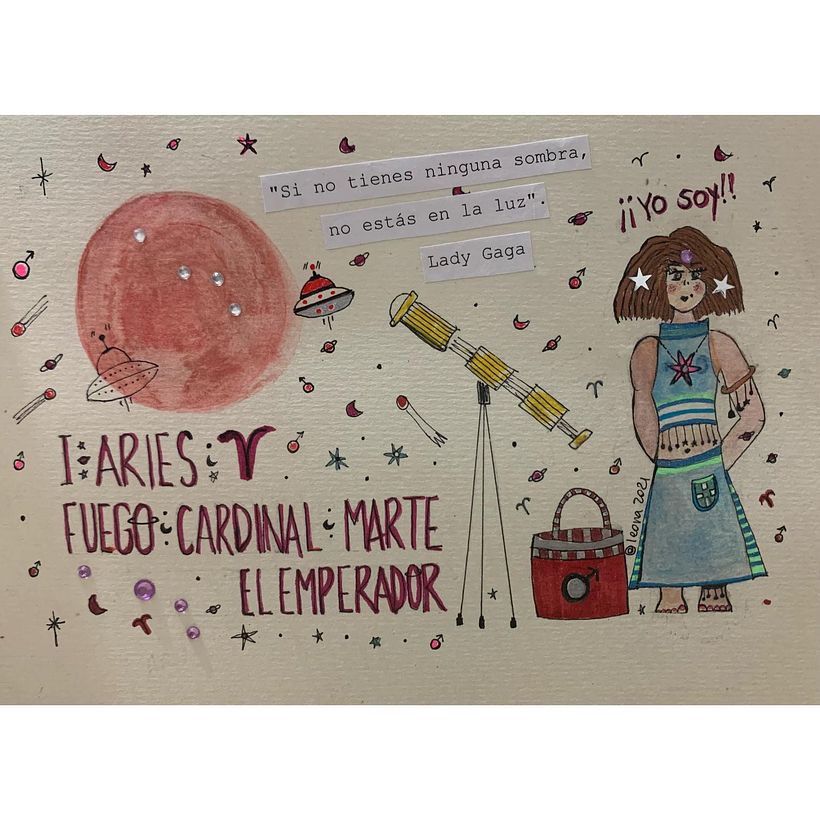 "Si no tienes ninguna sombra,
no estás en la luz".
Lady Gaga
¡¡YO SOY!!
I ARIES ♈
FUEGO CARDINAL MARTE
EL EMPERADOR
@leona 2021